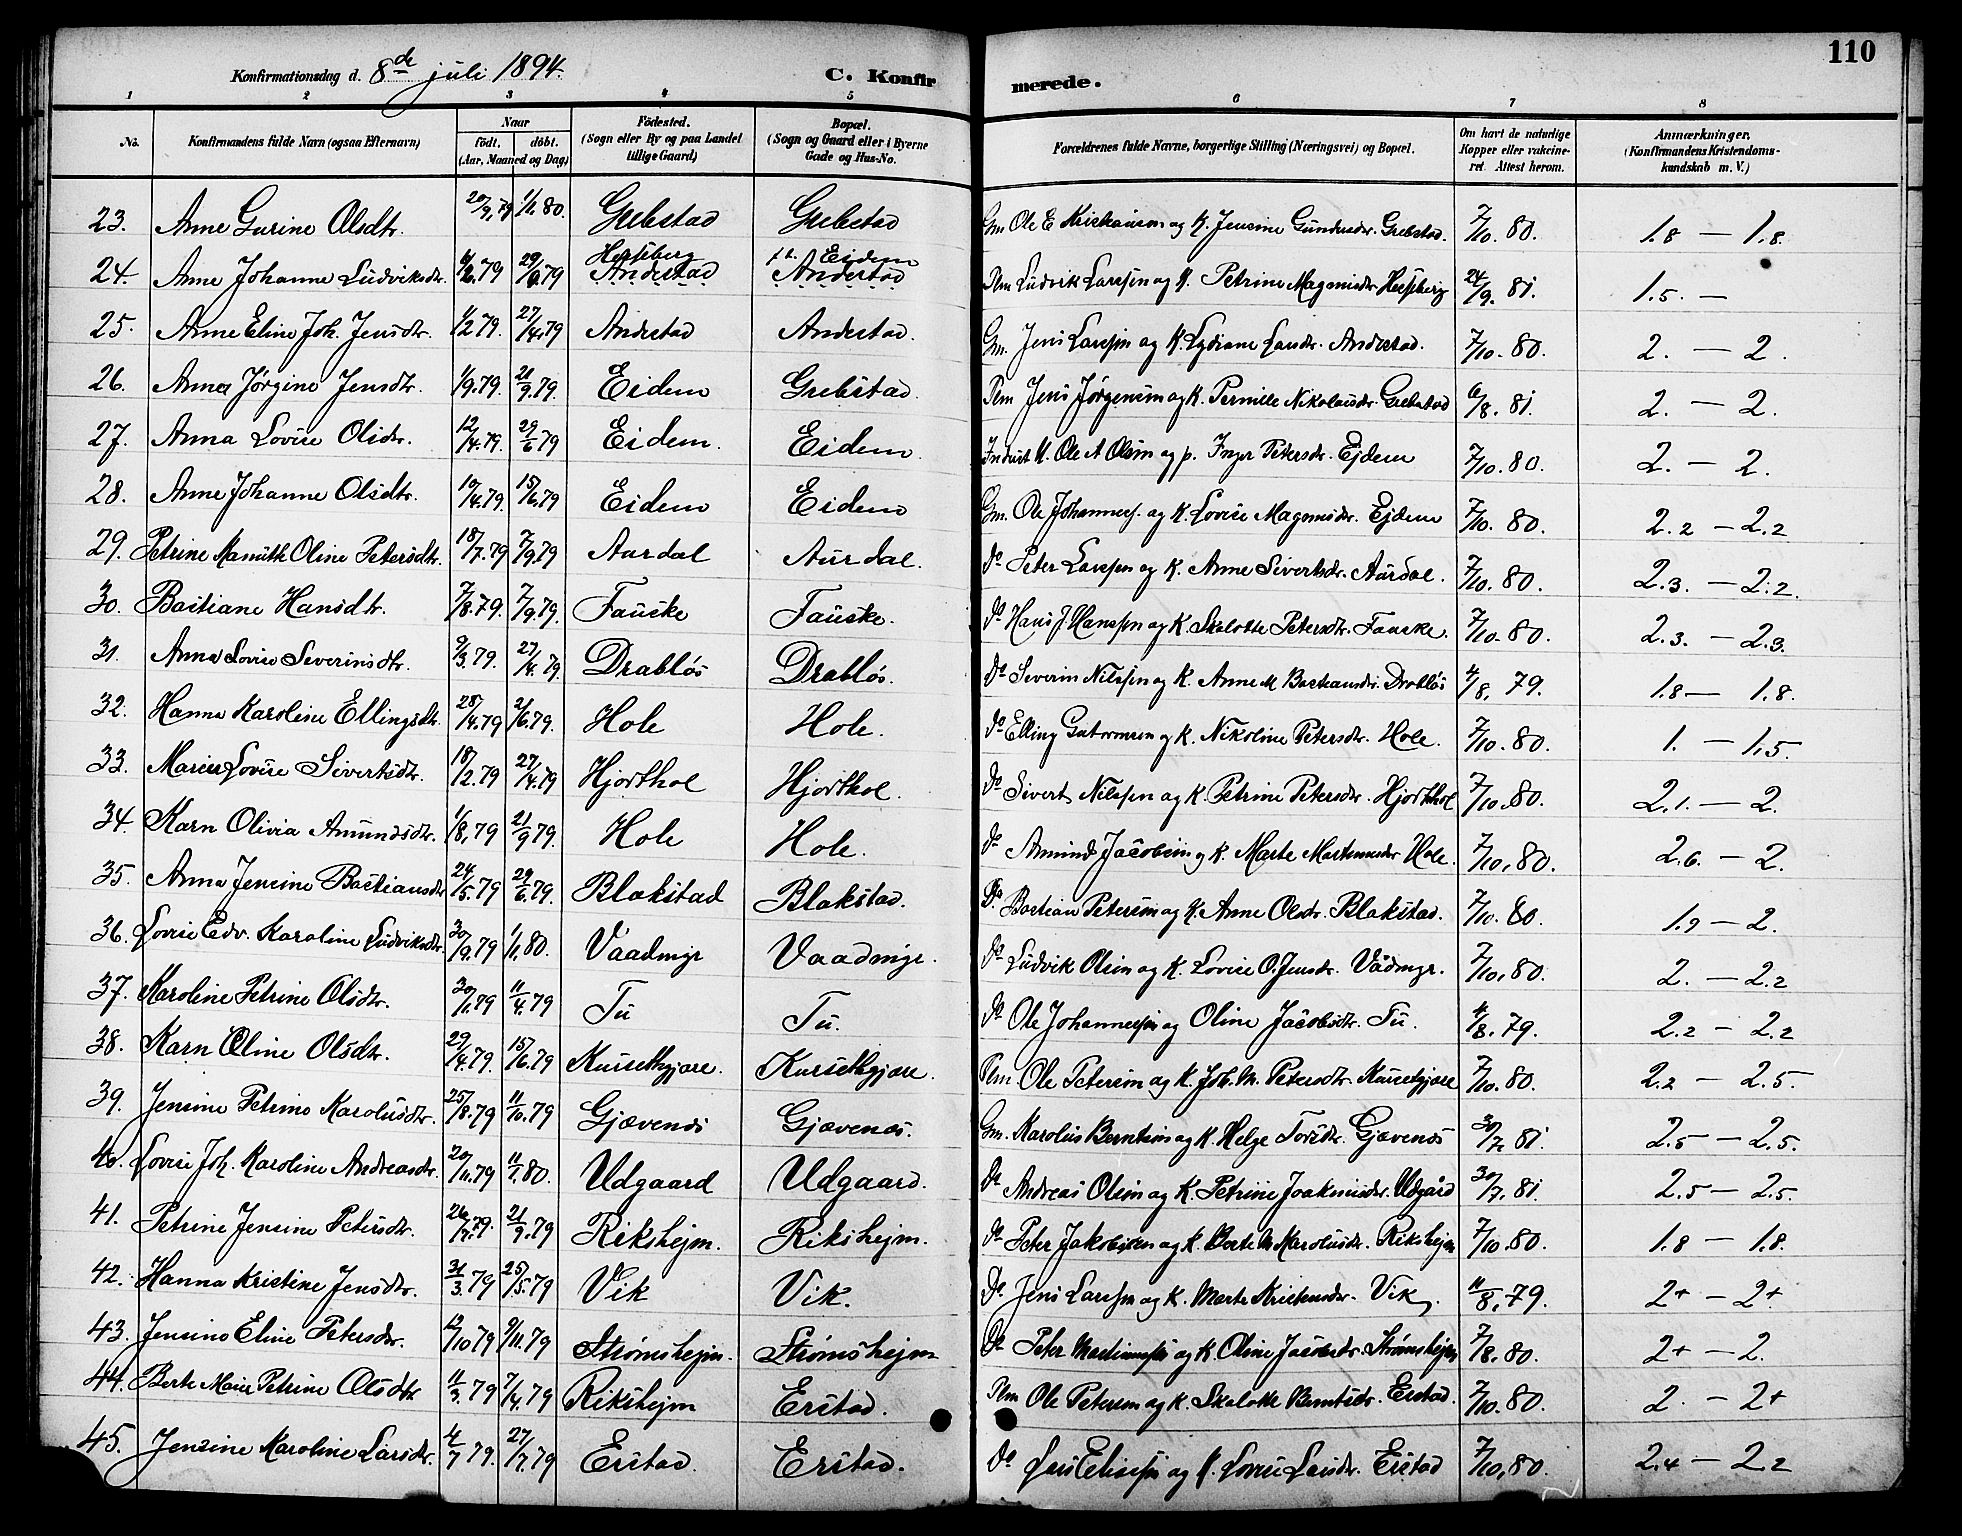 110
Konfirmationsdag d. 8de juli 1894. C. Konfirmerede.
1 2 3 4 5 6 7 8
No. Konfirmandens fulde Navn (ogsaa Efternavn) Naar födt. döbt. (Aar, Maaned og Dag) Födested. (Sogn eller By og paa Landet tillige Gaard) Bopæl. (Sogn og Gaard eller i Byerne Gade og Hus-No. Forældrenes fulde Navne, borgerlige Stilling (Næringsvei) og Bopæl. Om havt de naturlige Kopper eller vakcineret. Attest herom. Anmærkninger. (Konfirmandens Kristendomskundskab m. V.)
23. Anne Gurine Olsdtr. 20/9.79 1/1.80. Grebstad Grebstad Gm. Ole E Kristiansen og K. Jensine Gundersdr. Grebstad. 7/10.80. 1.8 — 1.8.
24. Anne Johanne Ludviksdr. 79 29/6 79 Hessberg Andestad Eidem Andestad Plm Ludvik Larssen og K. Petrine Magnusdr Hessberg 24/9.81. 1.5. —
25. Anne Eline Joh. Jensdtr. 1/2 79. 27/4.79 Andestad Andestad. Gm. Jens Larssen og K. Lydiane Larsdr. Andestad. 7/10.80. 2. — 2.
26. Anna Jørgine Jensdtr. 1/9.79. 21/9.79. Eidem Grebstad. Plm Jens Jørgensen og K. Pernille Nikolaisdr. Grebstad 6/8.81. 2. — 2.
27. Anna Lovise Olsdtr. 12/4.79. 29/6 79 Eidem. Eidem. Indust M. Ole A Olsen og p. Inger Petersdr. Ejdem 7/10.80. 2. — 2.
28. Anne Johanne Olsdtr. 10/4.79. 15/6.79 Eidem Eidem Gm. Ole Johanness. og K. Lovise Magnusdr. Ejdem 7/10.80. 2.2 — 2.2
29. Petrine Oline Petersdtr. 18/7.79 7/9.79 Aurdal Aurdal. do Peter Larssen og K. Anne Sivertsdr. Aurdal. 7/10.80. 2.3. — 2.2.
30. Bastiane Hansdtr. 7/8.79. 7/9.79. Fauske Fauske. do Hans J. Hanssen og K. Skalotte Petersdtr. Fauske. 7/10.80. 2.3. — 2.3.
31. Anna Lovise Severinsdtr. 9/3.79. 27/4.79 Drabløs Drabløs. do Severin Nilssen og K. Anne M Bastiansdr. Drabløs 4/8.79. 1.8 — 1.8.
32. Hanna Karoline Ellingsdtr. 28/4.79 2/6.79. Hole Hole. do Elling Guttormsen og K. Nikoline Petersdtr. Hole. 7/10.80. 1. — 1.5
33. Marie Lovise Sivertsdtr. 18/2.79 27/4.79 Hjorthol Hjorthol. do Sivert Nilssen og K. Petrine Petersdtr. Hjorthol 7/10.80. 2.1. — 2.
34. Karn Olivia Amundsdtr. 1/8.79 21/9 79. Hole Hole. do Amund Jacobsen og K. Marte Hole. 7/10.80. 2.6. — 2.
35. Anna Jensine Bastiansdtr 24/5.79 29/6.79. Blakstad Blakstad. do Bastian Petersen og K. Anne Olsdtr. Blakstad. 7/10.80 1.9 — 2.
36. Lovise Edv. Karoline Ludviksdtr. 30/9.79 1/1.80. Vaadmyr Vaadmyr. do Ludvik Olsen og K. Lovise O. Jensdr. Vådmyr. 7/10.80. 2. — 2.2
37. Karoline Petrine Olsdtr. 30/1.79 11/4.79 Tu Tu. do Ole Johannessen og Oline Jacobsdtr. Tu. 4/8.79. 2.2 — 2.2
38. Karn Oline Olsdtr. 29/4.79. 15/6.79 Kursethgjære. Kursethgjære. Plm Ole Petersen og K. Joh. M. Petersdtr. Kursetgjære 7/10.80. 2.2 — 2.5.
39. Jensine Petrine Karolusdtr. 25/8.79 11/10.79 Gjævenæs Gjævenæs. Gm. Karolus Berntsen og K. Helge Toresdtr. Gjævenæs 30/7.81. 2.5 — 2.5.
40. Lovise Joh. Karoline Andreasdtr. 20/11.79 11/1.80. Udgaard Udgaard. do Andreas Olsen og K. Petrine Joakimsdr. Udgård 30/7.81. 2.5 — 2.5.
41. Petrine Jensine Petersdtr. 79. 21/9.79 Rikshejm. Rikshejm. do Peter Jakobsen og K. Berte M Karolusdr. Rikshejm 7/10.80. 1.8 — 1.8.
42. Hanna Kristine Jensdtr. 31/3.79 25/5.79 Vik Vik. do Jens Larssen og K. Marte Vik. 11/8.79. 2+ — 2+
43. Jensine Eline Petersdtr. 12/10 79 9/11.79 Strømshejm. Strømshejm do Peter og K. Oline Jacobsdr. Strømshejm 7/8.80. 2+ — 2.
44. Berte Marie Petrine Olsdtr 11/3 79 79 Rikshejm Erstad. Plm Ole Petersen og K. Skalotte Berntsdr. Erstad. 7/10.80. 2. — 2+
45. Jensine Karoline Larsdtr. 4/7 79. 27/7.79 Erstad. Erstad. do Lars Eliassen og K. Lovise Larsdr. Erstad 7/10.80. 2.4 — 2.2